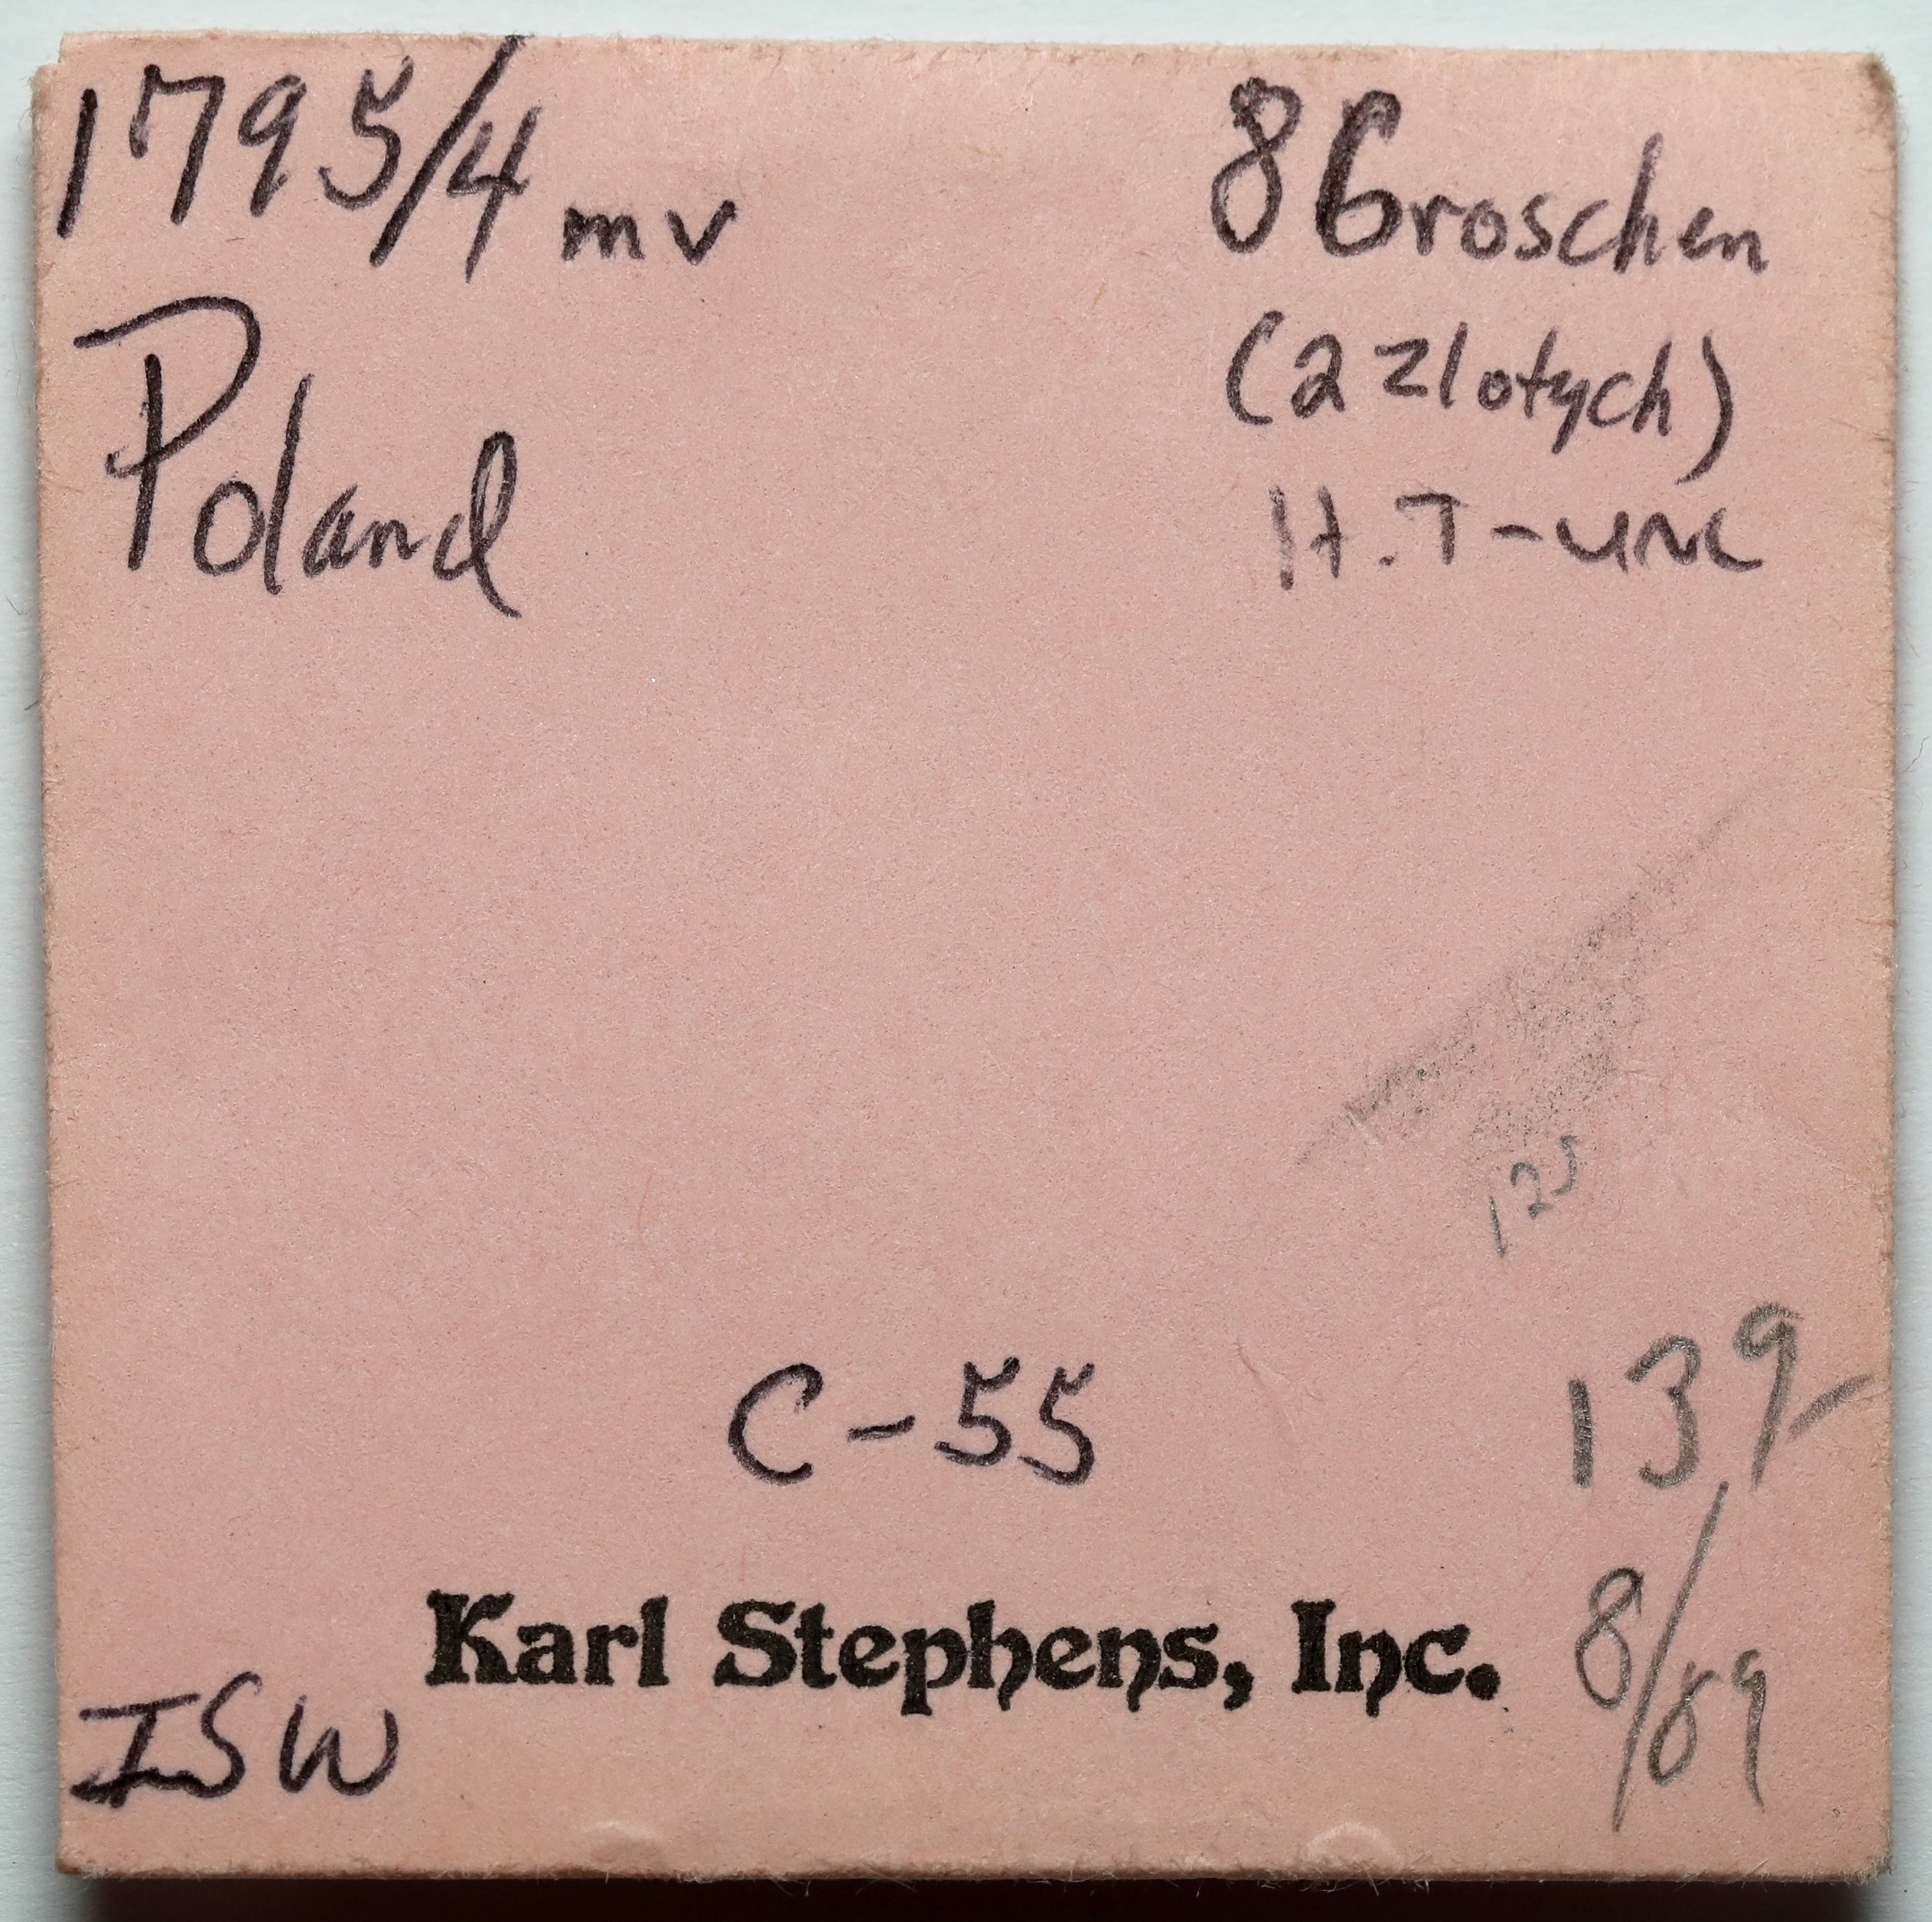 1795/4 mv
8 Groschen
(2 zlotych)
Poland
H.T-UNC
125
C-55
139-
Karl Stephens, Inc.
8/89
ISW